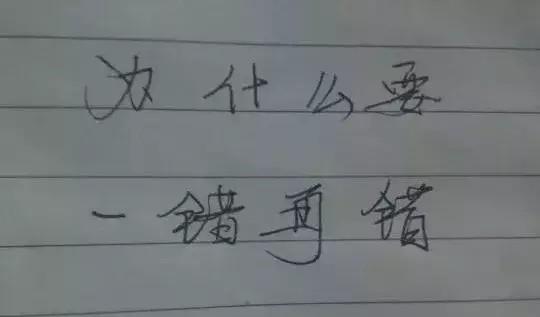 为什么要
一错再错